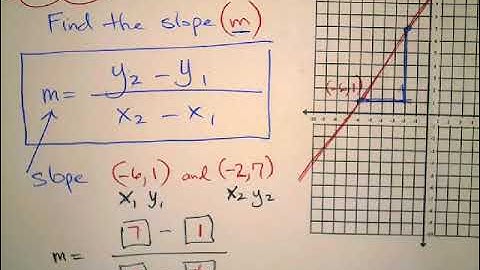 Find the slope (m)
m = y₂ - y₁
x₂ - x₁
slope (-6,1) and (-2,7)
x₁ y₁ x₂ y₂
m = 7 - 1
(-6,1)